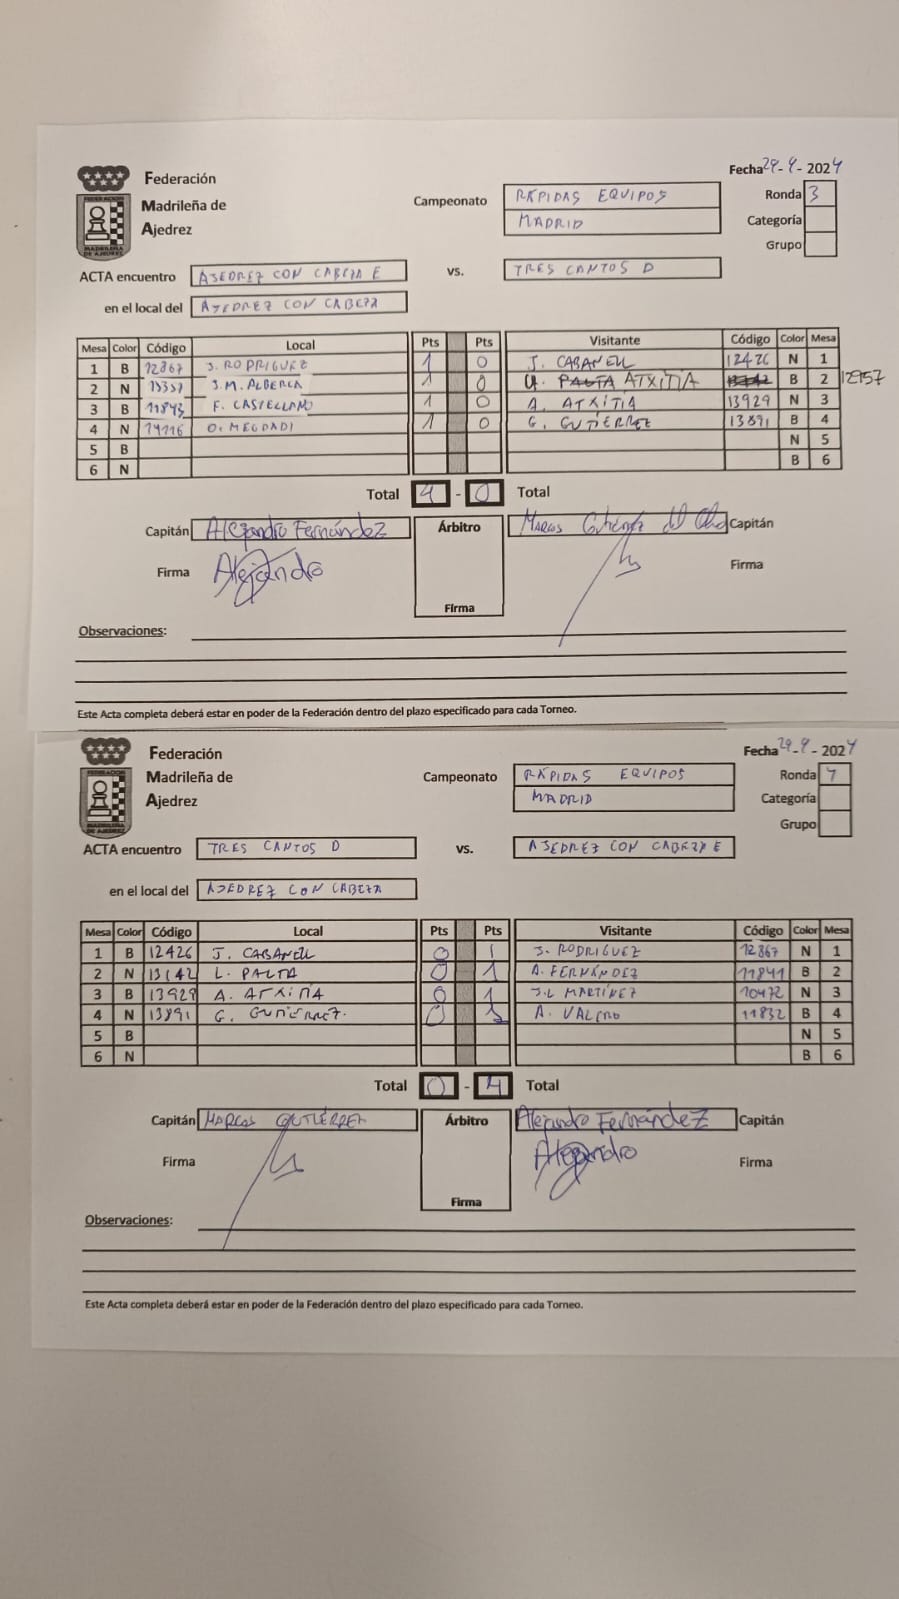 Federación
Madrileña de
Ajedrez
Campeonato RÁPIDAS EQUIPOS
MADRID
Fecha 29-9-2024
Ronda 3
Categoría
Grupo
ACTA encuentro AJEDREZ CON CABEZA E vs. TRES CANTOS D
en el local del AJEDREZ CON CABEZA
Mesa Color Código Local Pts Pts Visitante Código Color Mesa
1 B 12867 J. RODRIGUEZ 1 0 J. CABANELL 12426 N 1
2 N J.M. ALBERCA 1 0 ATXITIA B 2 12957
3 B 11843 F. CASTELLANO 1 0 A. ATXITIA 13929 N 3
4 N 14116 O. MEGDADI 1 0 G. GUTIÉRREZ 13891 B 4
5 B N 5
6 N B 6
Total 4 - 0 Total
Capitán Alejandro Fernández Árbitro Marcos Gutiérrez del Capitán
Firma Alejandro Firma
Firma
Observaciones:
Este Acta completa deberá estar en poder de la Federación dentro del plazo especificado para cada Torneo.
Federación
Madrileña de
Ajedrez
Campeonato RÁPIDAS EQUIPOS
MADRID
Fecha 29-9-2024
Ronda 4
Categoría
Grupo
ACTA encuentro TRES CANTOS D vs. AJEDREZ CON CABEZA E
en el local del AJEDREZ CON CABEZA
Mesa Color Código Local Pts Pts Visitante Código Color Mesa
1 B 12426 J. CABANELL 0 1 J. RODRIGUEZ 12867 N 1
2 N 13142 L. PALTA 0 1 A. FERNÁNDEZ 11841 B 2
3 B 13929 A. ATXITIA 0 1 J.L MARTÍNEZ 10472 N 3
4 N 13891 G. GUTIÉRREZ. 0 1 A. VALERO 11832 B 4
5 B N 5
6 N B 6
Total 0 - 4 Total
Capitán MARCOS GUTIÉRREZ Árbitro Alejandro Fernández Capitán
Firma Alejandro Firma
Firma
Observaciones:
Este Acta completa deberá estar en poder de la Federación dentro del plazo especificado para cada Torneo.